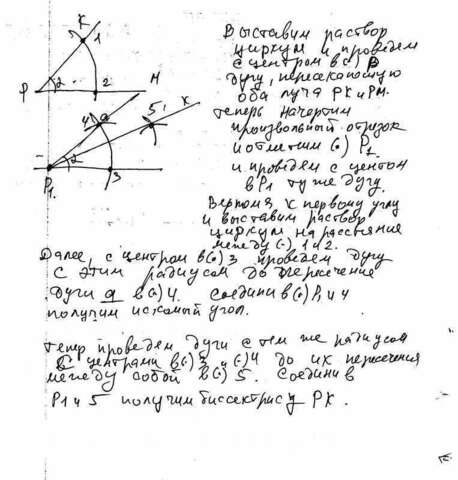 K
1
2
P
2
M
Выставим раствор
циркуля и проведем
с центром в (•) P
дугу, пересекающую
оба луча PK и PM.
Теперь начертим
произвольный отрезок
и отметим (•) P1
и проведем с центом
в P1 ту же дугу.
4
a
5
K
2
P1
3
Вернемся к первому углу
и выставим раствор
циркуля на расстояние
между (•) 1 и 2.
Далее, с центром в (•) 3 проведем дугу
с этим радиусом до пересечения
дуги a в (•) 4. Соединив (•) P1 и 4
получим искомый угол.
Теперь проведем дуги с тем же радиусом
с центрами в (•) 3 и (•) 4 до их пересечения
между собой в (•) 5. Соединив
P1 и 5 получим биссектрису PK.